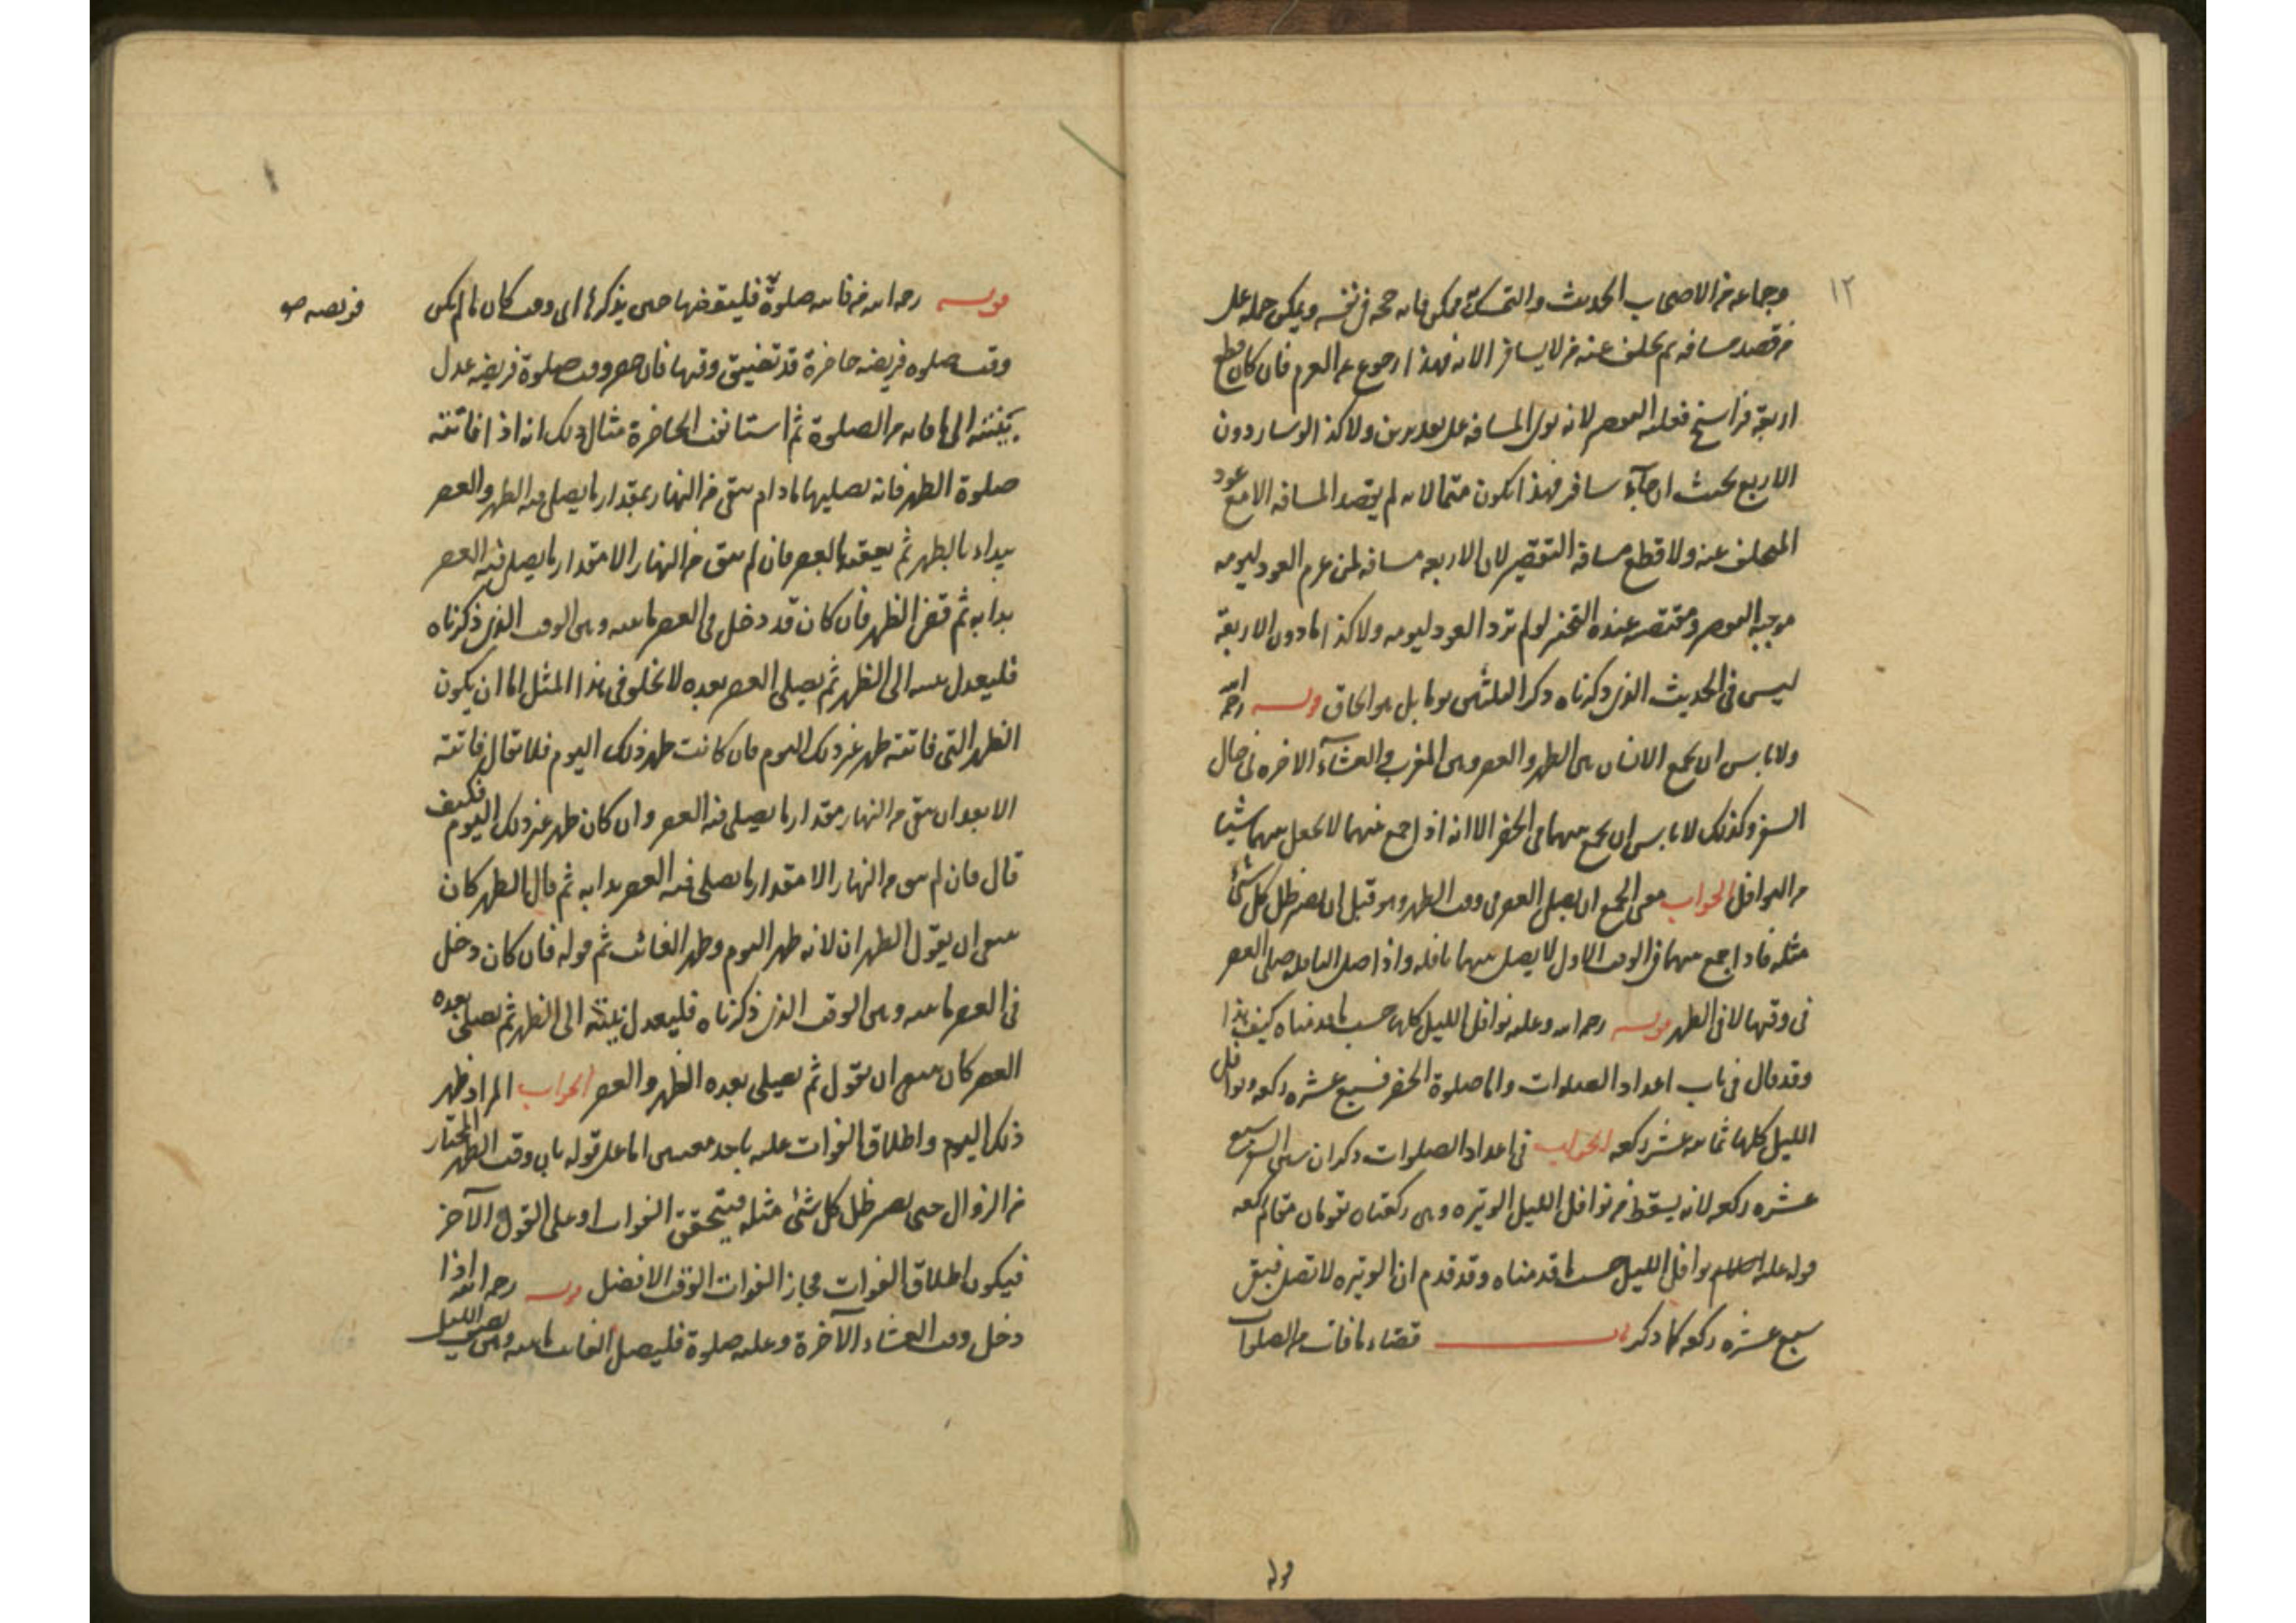 ١٢
وجماعه من الاصحاب الحديث والتمسك به ممكن فانه حجه فى نفسه ويمكن حمله على
من قصد مسافه ثم تخلف عنه من لا يسافر الا به فهذا رجوع عن العزم فان كان قطع
اربعة فراسخ فعليه القصر لانه نوى المسافه على بعد بريدين ولا كذا لو سار دون
الاربع بحيث ان جاء سافر فهذا يكون متما لانه لم يقصد المسافه الا مع عود
المتخلف عنه ولا قطع مسافة التقصير لان الاربعه مسافه لمن عزم العود ليومه
موجبه القصر ومقتضيه عنده التخير لو لم يرد العود ليومه ولا كذا ما دون الاربعة
ليس فى الحديث الذى ذكرناه ذكر الثلثين يوما بل هو الحاق قوله رحمه الله
ولا باس ان يجمع الانسان بين الظهر والعصر وبين المغرب والعشاء الاخره فى حال
السفر وكذلك لا باس ان يجمع بينهما فى الحضر الا انه اذا جمع بينهما لا يجعل بينهما شيئا
من النوافل الجواب معنى الجمع ان يصلى العصر فى وقت الظهر وهو قبل ان يصير ظل كل شئ
مثله فاذا جمع بينهما فى الوقت الاول لا يصلى بينهما نافله واذا صلى النافله صلى العصر
فى وقتها لا فى الظهر قوله رحمه الله وعليه نوافل الليل كلها حسب ما قدمناه كيف هذا
وقد قال فى باب اعداد الصلوات واما صلوة الحضر فسبع عشره ركعه ونوافل
الليل كلها ثمانيه عشر ركعه الجواب فى اعداد الصلوات ذكر ان سنن السفر سبع
عشره ركعه لانه يسقط من نوافل الليل الوتيره وهى ركعتان تقومان مقام ركعه
قوله عليه السلام نوافل الليل حسب ما قدمناه وقد قدم ان الوتيره لا تصلى فبقى
سبع عشره ركعه كما ذكر باب قضاء ما فات من الصلوات
قوله
قوله رحمه الله من فاته صلوة فليقضها حين يذكرها اى وقت كان ما لم يكن
فريضه صح
وقت صلوه فريضه حاضرة قد تضيق وقتها فان حضر وقت صلوة فريضه عدل
بنيته الى ما فاته من الصلوة ثم استانف الحاضرة مثال ذلك انه اذا فاتته
صلوة الظهر فانه يصليها ما دام يبقى من النهار بمقدار ما يصلى فيه الظهر والعصر
يبداء بالظهر ثم يعقبه بالعصر فان لم يبق من النهار الا مقدار ما يصلى فيه العصر
بدا به ثم قضى الظهر فان كان قد دخل فى العصر ما بينه وبين الوقت الذى ذكرناه
فليعدل بنيته الى الظهر ثم يصلى العصر بعده لا يخلو فى هذا المثل اما ان يكون
الظهر التى فاتته ظهر غير ذلك اليوم فان كانت ظهر ذلك اليوم فلا يقال فاتته
الا بعد ان يبقى من النهار مقدار ما يصلى فيه العصر وان كان ظهر غير ذلك اليوم فكيف
قال فان لم يبق من النهار الا مقدار ما يصلى فيه العصر بدا به ثم قال الظهر كان
ينبغى ان يقول الظهران لانه ظهر اليوم وظهر الفائت ثم قوله فان كان دخل
فى العصر ما بينه وبين الوقت الذى ذكرناه فليعدل بنيته الى الظهر ثم يصلى بعده
العصر كان ينبغى ان يقول ثم يصلى بعده الظهر والعصر الجواب المراد ظهر
ذلك اليوم واطلاق الفوات عليه باحد معنيين اما على قوله بان وقت الظهر المختار
من الزوال حتى يصير ظل كل شئ مثله فيتحقق الفوات او على القول الآخر
فيكون اطلاق الفوات مجازا لفوات الوقت الافضل قوله رحمه الله اذا
دخل وقت العشاء الآخرة وعليه صلوة فليصل الفائت ما بينه وبين نصف الليل